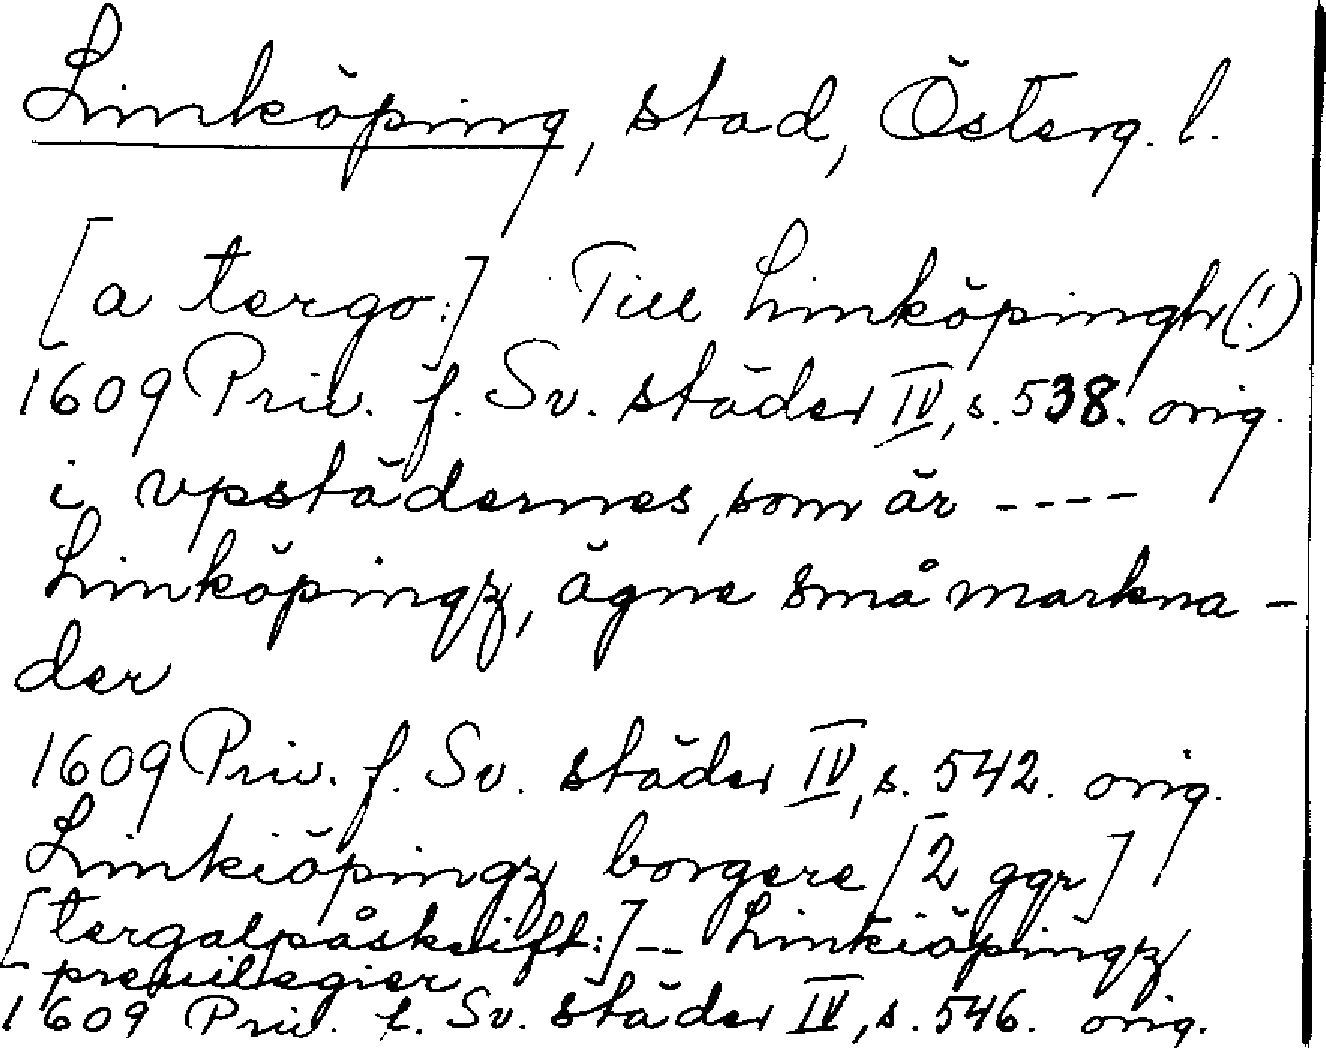 Linköping, stad, Österg. l.
[a tergo:] Till Linköpingh(!)
1609 Priv. f. Sv. städer IV, s. 538. orig.
i vpstädernes, som är ----
Linköpingz, ägne små markna-
der
1609 Priv. f. Sv. städer IV, s. 542. orig.
Linkiöpingz borgere [2 ggr]
[tergalpåskrift:] -- Linkiöpingz
previlegier
1609 Priv. f. Sv. städer IV, s. 546. orig.